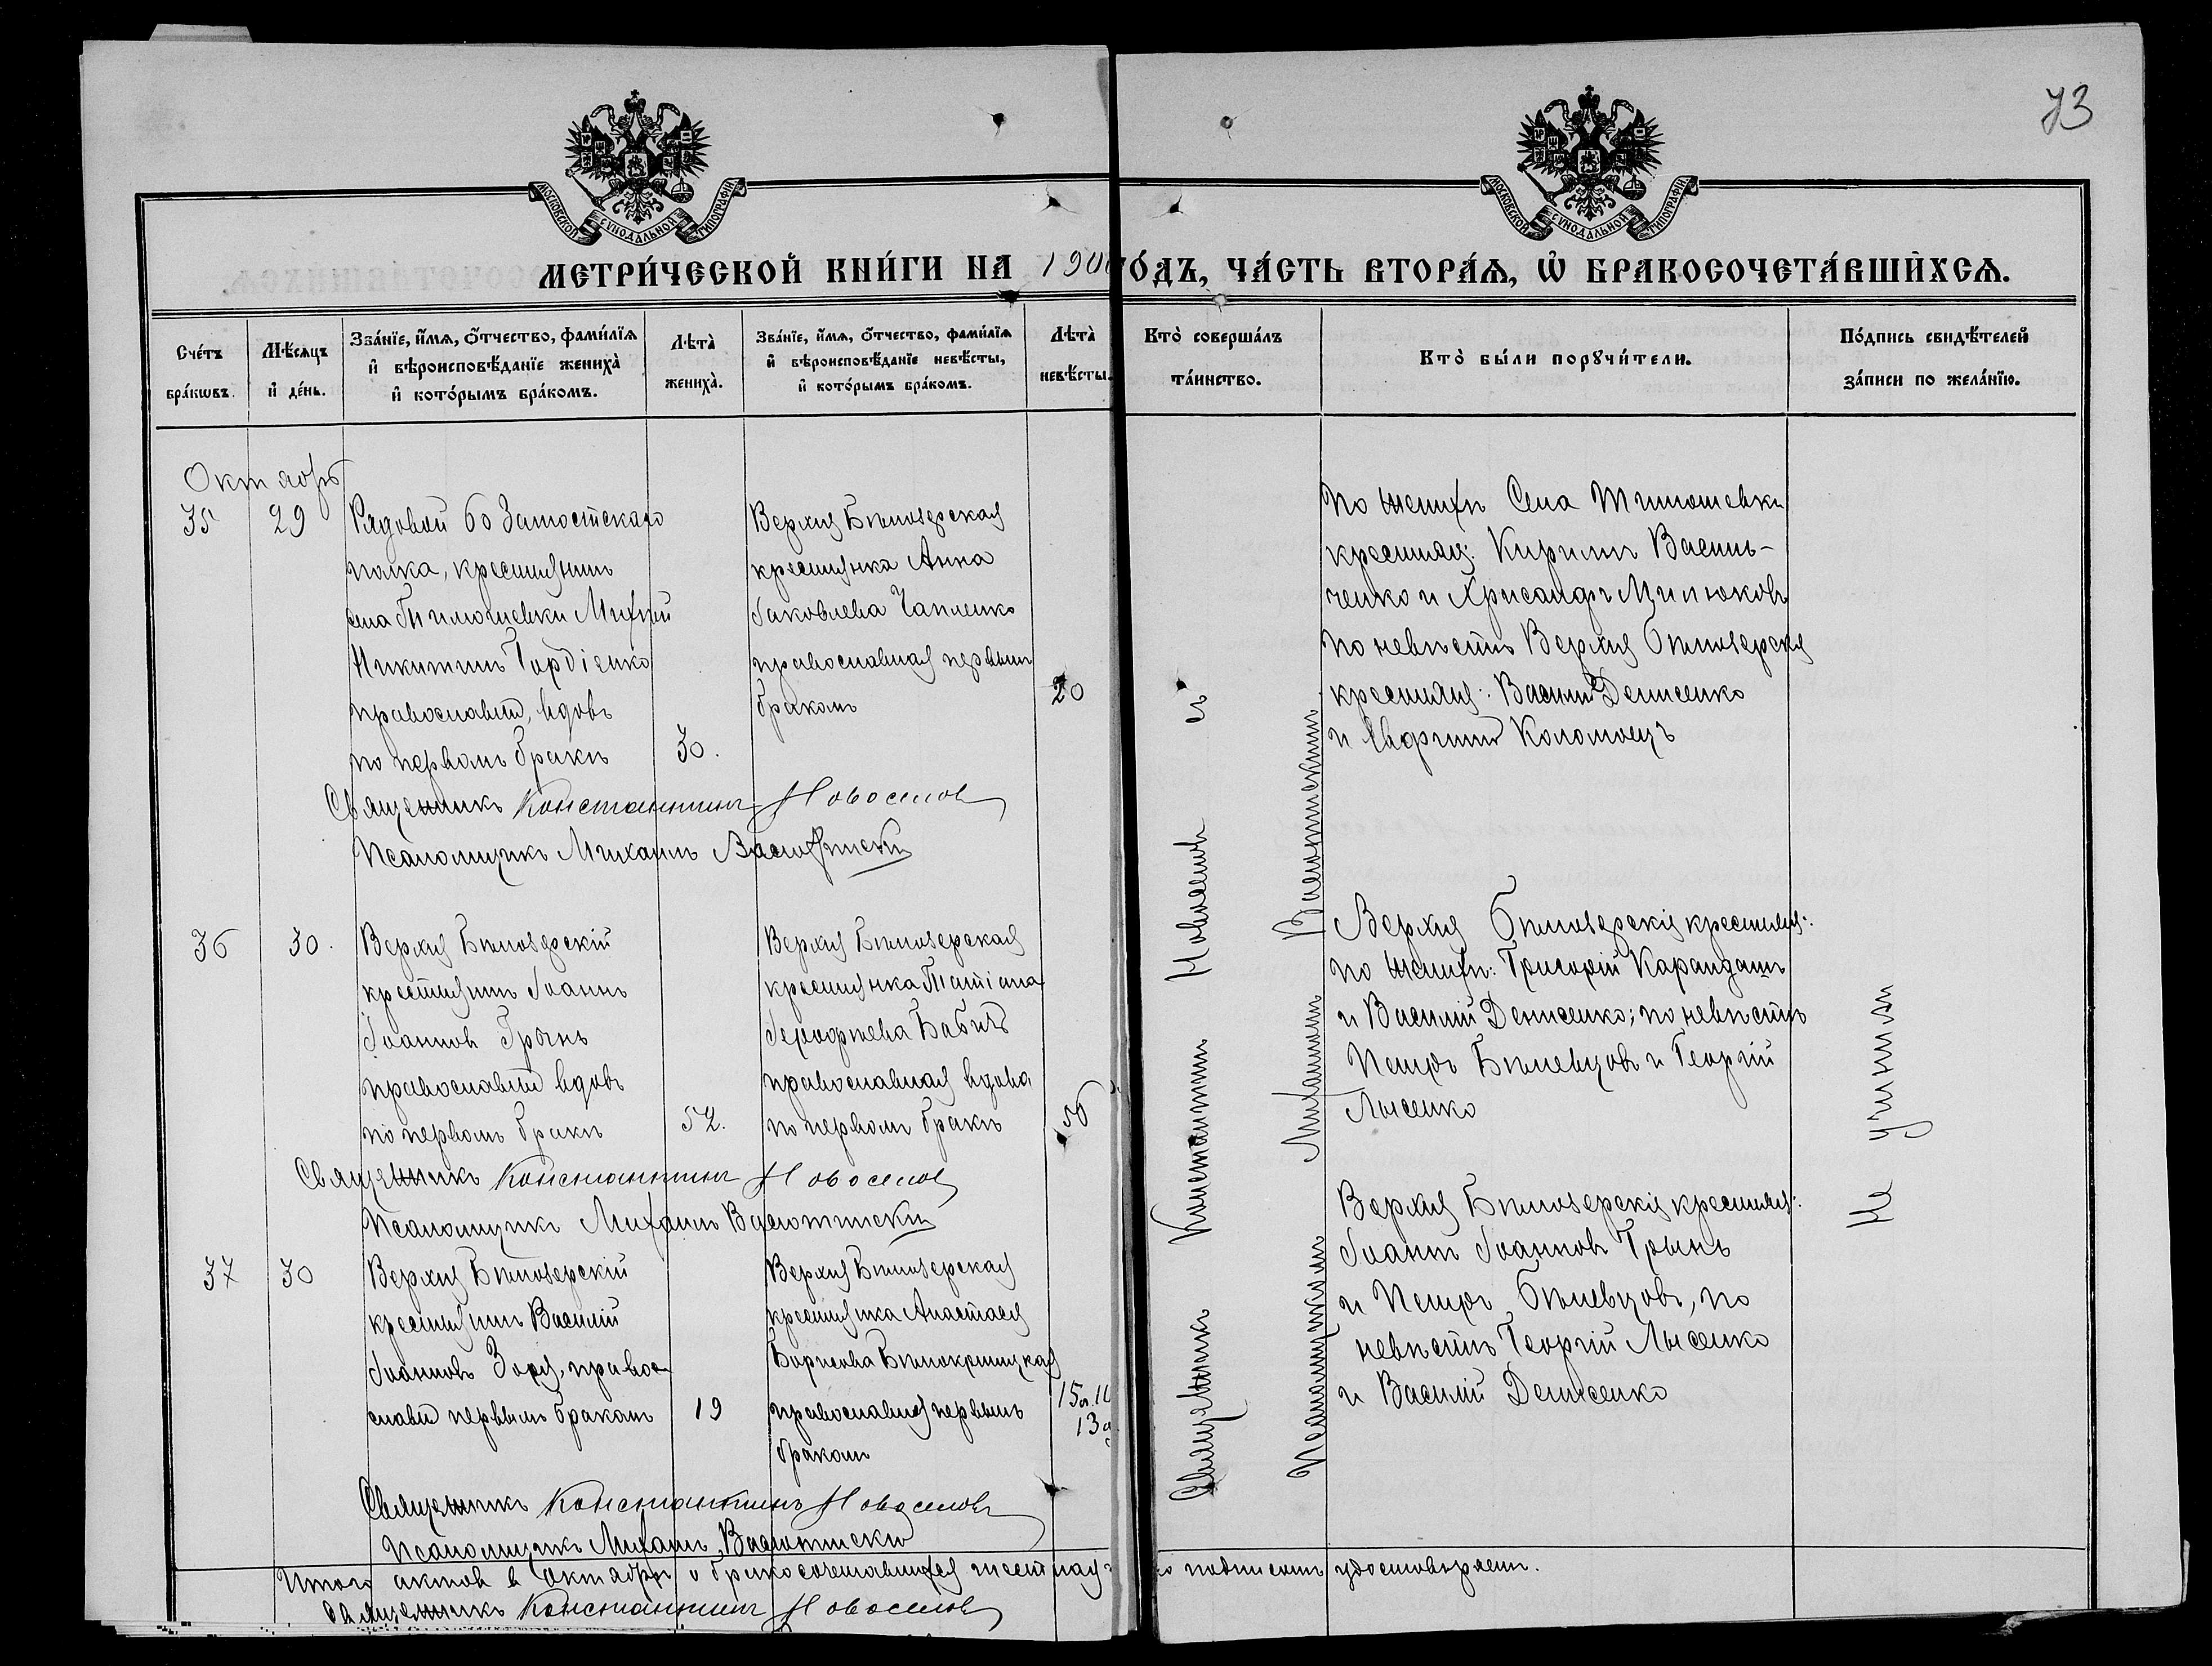 73
МОСКОВСКОЙ СѴНОДАЛЬНОЙ ТИПОГРАФІИ
МОСКОВСКОЙ СѴНОДАЛЬНОЙ ТИПОГРАФІИ
МЕТРИ́ЧЕСКОЙ КНИ́ГИ НА 190 ГО́ДЪ, ЧА́СТЬ ВТОРА́Ѧ, Ѡ҆ БРАКОСОЧЕТА́ВШИХСѦ.
Сче́тъ бра́кѡвъ.
Мѣ́сяцъ и҆ де́нь.
Зва́нїе, и҆́мѧ, ѻ҆́тчество, фами́лїѧ
и҆ вѣроисповѣ́данїе жениха̀
и҆ кото́рымъ бра́комъ.
Лѣта̀ жениха̀.
Зва́нїе, и҆́мѧ, ѻ҆́тчество, фами́лїѧ
и҆ вѣроисповѣ́данїе невѣ́сты,
и҆ кото́рымъ бра́комъ.
Лѣта̀ невѣ́сты.
Кто̀ соверша́лъ
та́инство.
Кто̀ бы́ли порꙋчи́тели.
По́дпись свидѣ́телей
за́писи по жела́нїю.
Октябрь
35
29
Рядовой 60 Замостскаго
полка, крестьянинъ
села Тимошевки
Никитинъ Гордіенко
православный, вдовъ
по первомъ бракѣ
30.
Верхня Бѣлозерская
крестьянка Анна
Іаковлева Чапленко
православная первымъ
бракомъ
20
По женихѣ Села Тимошевки
крестьян: Кириллъ Василь-
ченко и Хрисанфъ Милюковъ
по невѣстѣ Верхня Бѣлозерскія
крестьян: Василій Денисенко
и Евфимій Коломоецъ
Священникъ Константинъ Новоселовъ
Псаломщикъ Михаилъ
36
30.
Верхня Бѣлозерскій
крестьянинъ Іоаннъ
Іоанновъ Грынь
православный вдовъ
по первомъ бракѣ
52.
Верхня Бѣлозерская
крестьянка Татіана
Бабичъ
православная вдова
по первомъ бракѣ
50
Верхня Бѣлозерскія крестьян:
по женихѣ: Григорій Карандашъ
и Василій Денисенко; по невѣстѣ
Петръ Бѣлевцовъ и Георгій
Лысенко
Священникъ Константинъ Новоселовъ
Псаломщикъ Михаилъ
37
30
Верхня Бѣлозерскій
крестьянинъ Василій
Іоанновъ Заяц, правос-
лавный первымъ бракомъ
19
Верхня Бѣлозерская
крестьянка Анастасія
Борисова Бѣлокриницкая
православная первымъ
бракомъ
15
13
Верхня Бѣлозерскія крестьян:
Іоаннъ Іоанновъ Грынь
и Петръ Бѣлевцовъ, по
невѣстѣ Георгій Лысенко
и Василій Денисенко
Священникъ Константинъ Новоселовъ
Псаломщикъ Михаилъ
Священникъ Константинъ Новоселовъ съ
Псаломщикомъ Михаиломъ
Не учинили
Итого актов в Октябрѣ о бракосочетавшихся подписомъ удостовѣряемъ.
Священникъ Константинъ Новоселовъ